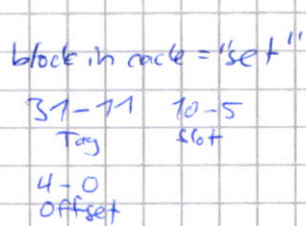 block in cache = "set"
31-11 10-5
Tag Slot
4-0
Offset